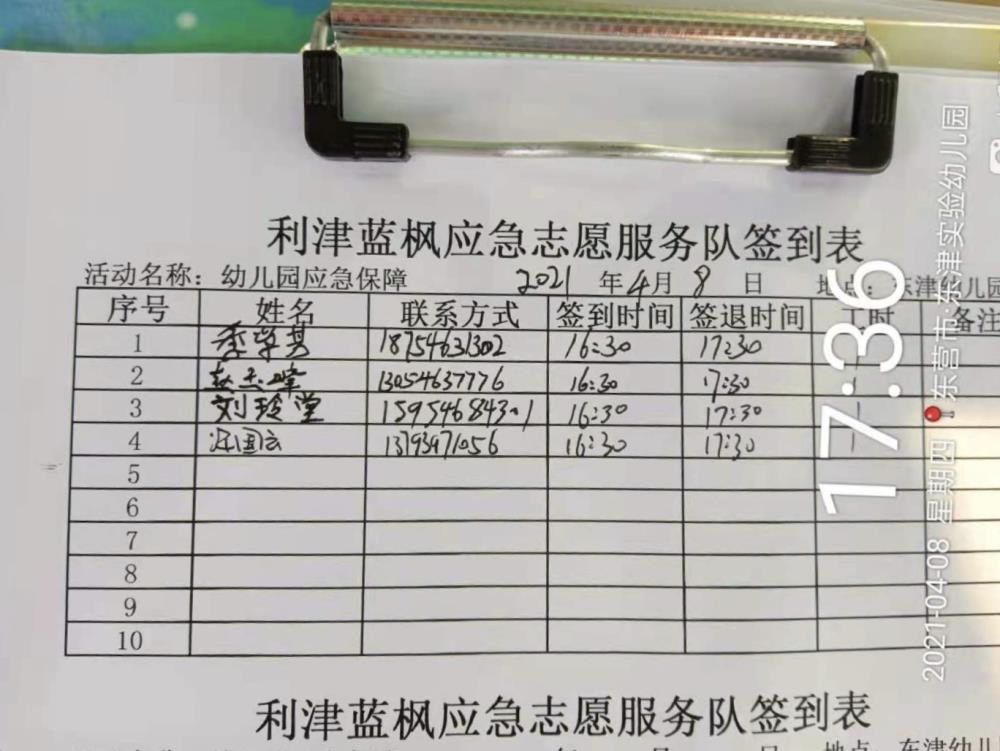 利津蓝枫应急志愿服务队签到表
活动名称：幼儿园应急保障 2021 年 4 月 8 日 地点：东津幼儿园
序号 姓名 联系方式 签到时间 签退时间 工时 备注
1 季学其 18754631302 16:30 17:30 1
2 13054637776 16:30 17:30 1
3 刘玲堂 15954684301 16:30 17:30 1
4 国云 13793971056 16:30 17:30 1
5
6
7
8
9
10
利津蓝枫应急志愿服务队签到表
地点：东津幼儿
17:36
2021-04-08 星期四 东营市·东津实验幼儿园